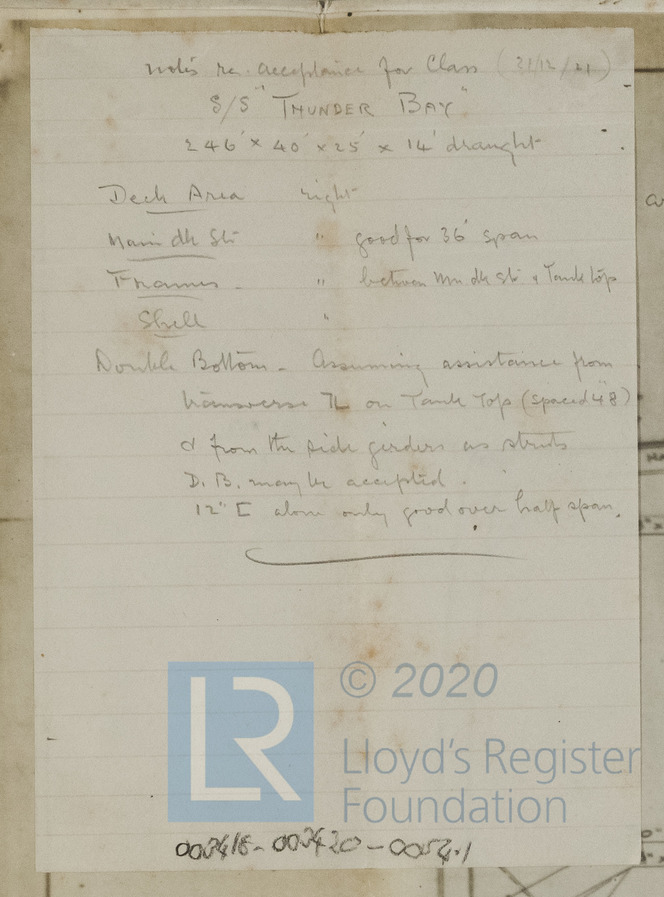 Notes re. acceptance for Class (31/12/21)
S/S "THUNDER BAY"
246' x 40' x 25' x 14' draught
Deck Area right
Main dk Str " good for 36' span
Frames - " between Mn dk Str & Tank top
Shell "
Double Bottom - Assuming assistance from
transverse on Tank Top (spaced 48")
& from the side girders as struts
D. B. may be accepted.
12" [ alone only good over half span.
LR
© 2020
Lloyd's Register
Foundation
003418-003420-0054-1